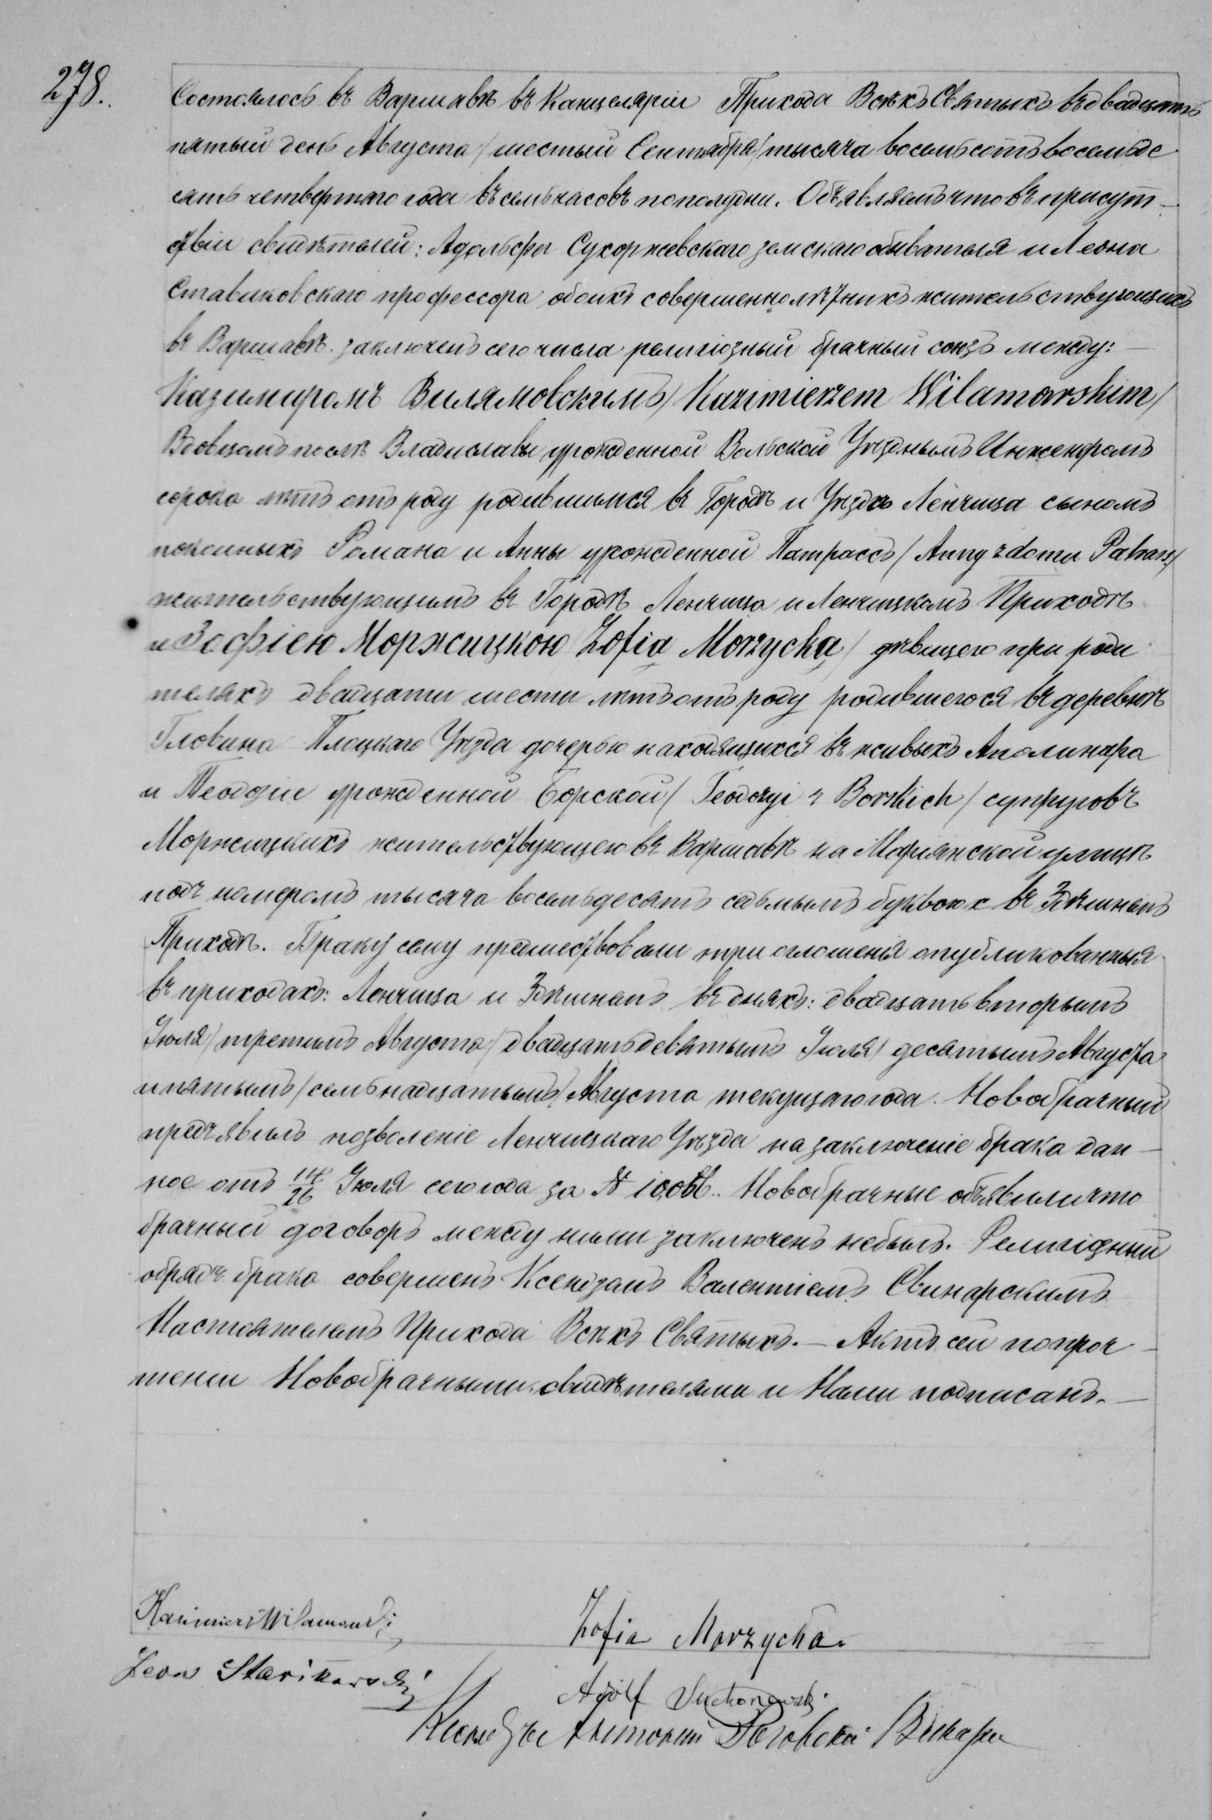 278.
Состоялось въ Варшавѣ въ Канцеляріи Прихода Всѣхъ Святыхъ въ двадцать
пятый день Августа /шестый Сентября/ тысяча восемьсотъ восемьде
сятъ четвертаго года въ семь часовъ пополудни. Объявляемъ что въ присут-
ствіи свидѣтелей: Адольфа Сухоржевскаго земскаго обывателя и Леона
Ставиковскаго профессора обоихъ совершеннолѣтнихъ жительствующихъ
въ Варшавѣ. заключенъ сего числа религіозный брачный союзъ между:—
Казимиромъ Вилямовскимъ /Kazimierzem Wilamowskim/
Вдовцомъ послѣ Владиславы урожденной Вольской Уѣзднымъ Инженеромъ
сорока лѣтъ отъ роду родившимся въ Городѣ и Уѣздѣ Ленчица сыномъ
покойныхъ Романа и Анны урожденной Патрассъ /Anny z domu Patrass/
жительствующимъ въ Городѣ Ленчица и Ленчицкомъ Приходѣ
и Зофіею Моржицкою /Zofia Morzycka/ дѣвицею при роди
теляхъ двадцати шести лѣтъ отъ роду родившегося въ деревнѣ
Гловина Плоцкаго Уѣзда дочерью находящихся въ живыхъ Аполинара
и Теодзіи урожденной Борской /Teodozyi z Borskich/ супруговъ
Моржицкихъ жительствующею въ Варшавѣ на Маріянской улицѣ
подъ номеромъ тысяча восемьдесятъ седьмымъ буквою с въ Здѣшнемъ
Приходѣ. Браку сему предшествовали три оглошенія опубликованныя
въ приходахъ: Ленчица и Здѣшнемъ въ дняхъ: двадцать вторымъ
Іюля /третимъ Августа/ двадцать девятымъ Іюля /десятымъ Августа
и пятымъ /семьнадцатымъ/ Августа текущаго года. Новобрачный
предъявилъ позволеніе Ленчицкаго Уѣзда на заключеніе брака дан-
ное отъ 14/26 Іюля сего года за №. Новобрачные объявили что
брачный договоръ между ними заключенъ небылъ. Религіозный
обрядъ брака совершенъ Ксендзомъ Валентіемъ Свинарскимъ
Настоятелемъ Прихода Всѣхъ Святыхъ.— Актъ сей по проч-
теніи Новобрачными, свидѣтелями и Нами подписанъ.—
Kazimierz Wilamowski
Zofia Morzycka.
Leon Stawikowski
Adolf Suchorzewski.
Ксендзъ Антоній Роговскій Викарій